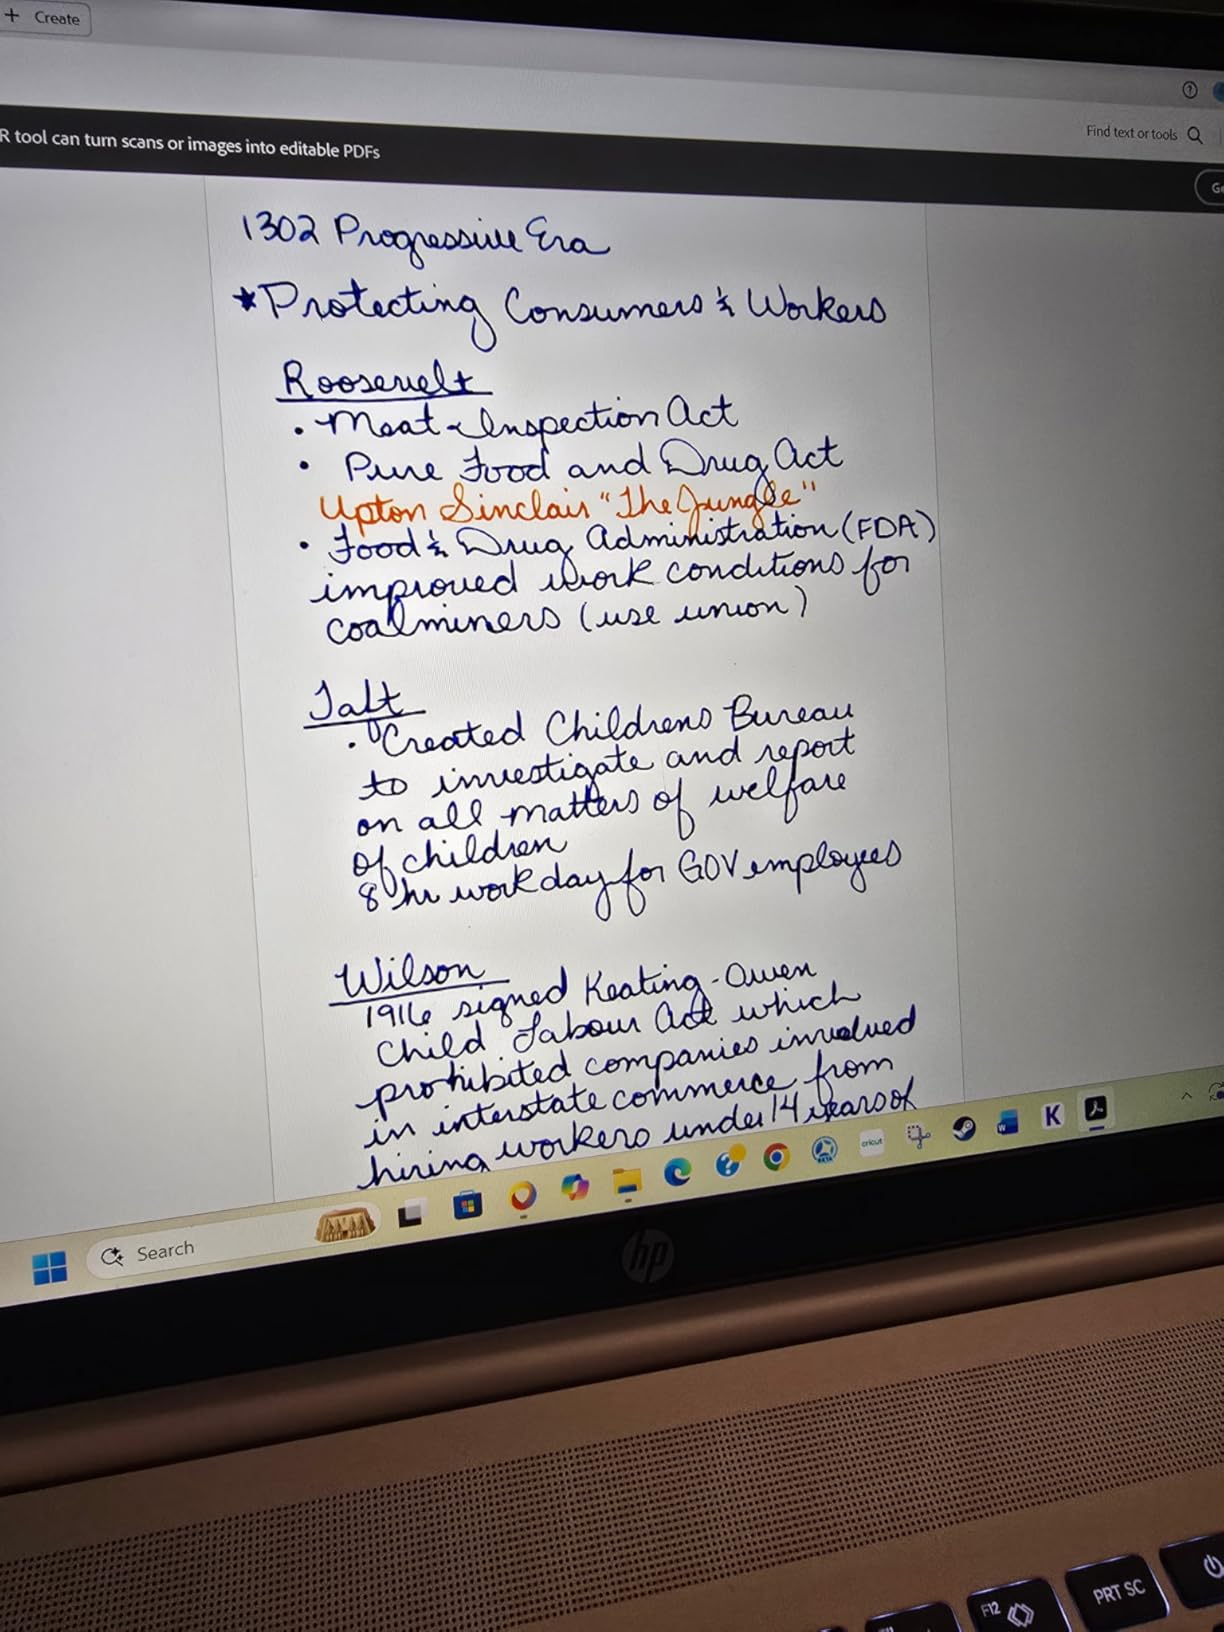 + Create
Find text or tools
R tool can turn scans or images into editable PDFs
1302 Progressive Era
*Protecting Consumers & Workers
Roosevelt
• Meat-Inspection Act
• Pure Food and Drug Act
Upton Sinclair "The Jungle"
• Food & Drug Administration (FDA)
improved work conditions for
coalminers (use union)
Taft
• Created Childrens Bureau
to investigate and report
on all matters of welfare
of children
8 hr workday for GOV employees
Wilson
1916 signed Keating-Owen
Child Labour Act which
prohibited companies involved
in interstate commerce from
hiring workers under 14 years of
Search
cricut
K
hp
F12
PRT SC